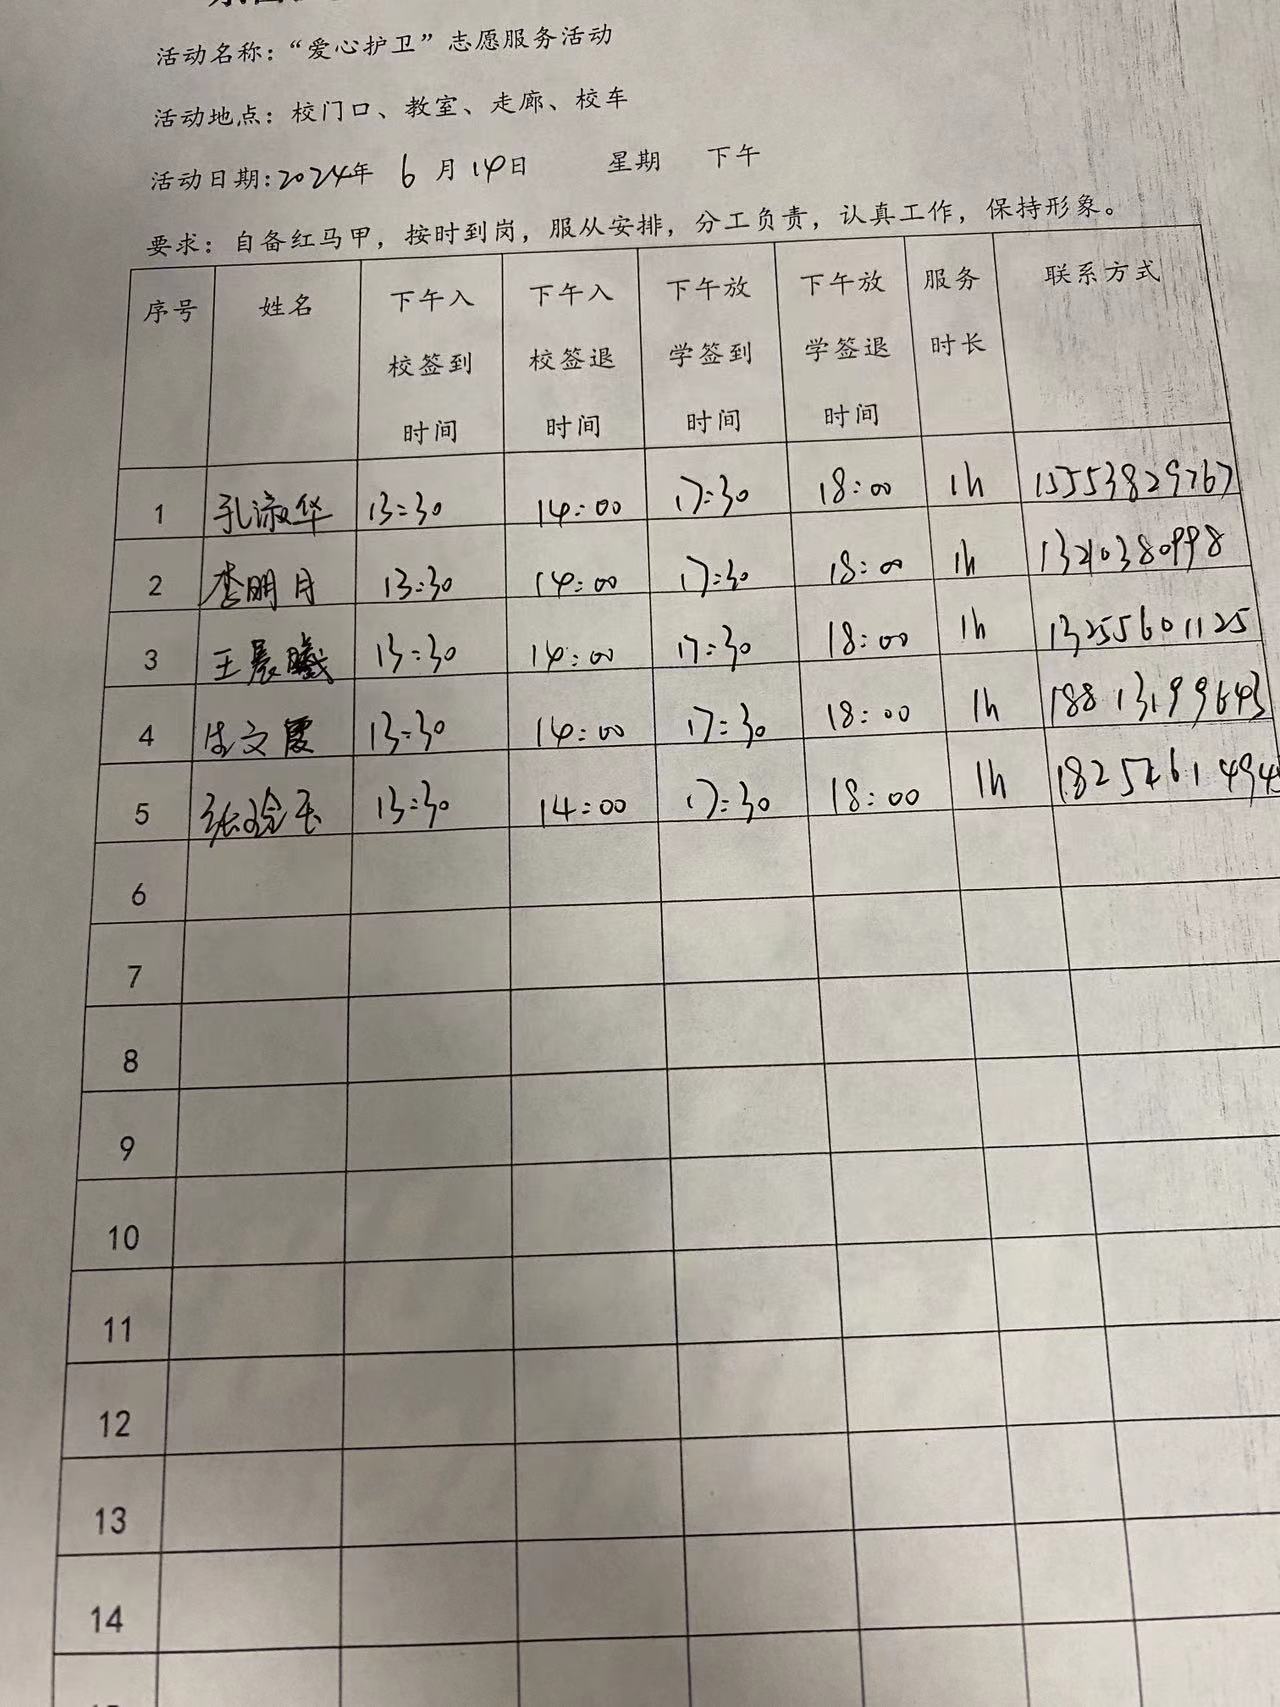 活动名称：“爱心护卫”志愿服务活动
活动地点：校门口、教室、走廊、校车
活动日期:2024年 6 月 14日 星期 下午
要求：自备红马甲，按时到岗，服从安排，分工负责，认真工作，保持形象。
序号 姓名 下午入校签到时间 下午入校签退时间 下午放学签到时间 下午放学签退时间 服务时长 联系方式
1 孔淑华 13:30 14:00 17:30 18:00 1h 15553829767
2 李明月 13:30 14:00 17:30 18:00 1h
3 王晨曦 13:30 14:00 17:30 18:00 1h 13255601125
4 文霞 13:30 14:00 17:30 18:00 1h 18813199643
5 13:30 14:00 17:30 18:00 1h
6
7
8
9
10
11
12
13
14